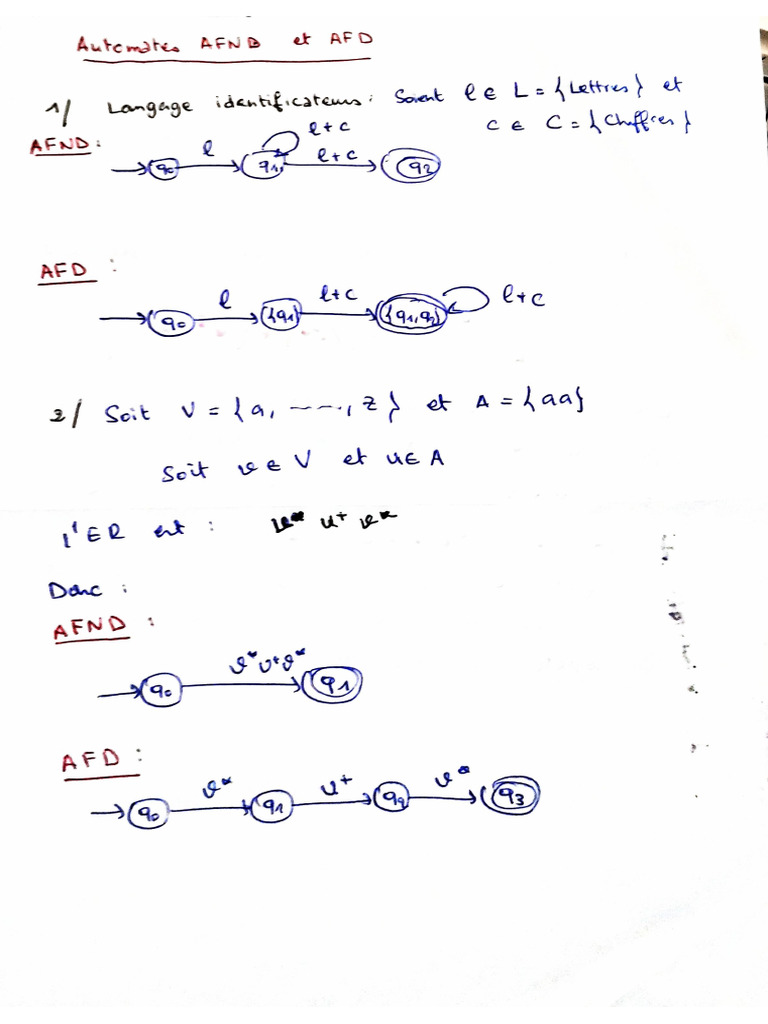 Automates AFND et AFD
1/ Langage identificateurs: Soient l ∈ L = {Lettres} et
c ∈ C = {Chiffres}
AFND:
l+c
q0 l q1 l+c q2
AFD :
q0 l {q1} l+c {q1,q2} l+c
2/ Soit V = {a, ----, z} et A = {aa}
Soit v ∈ V et u ∈ A
l'ER est : v* u+ v*
Donc :
AFND :
v*u+v*
q0 q1
AFD :
v* u+ v*
q0 q1 q2 q3